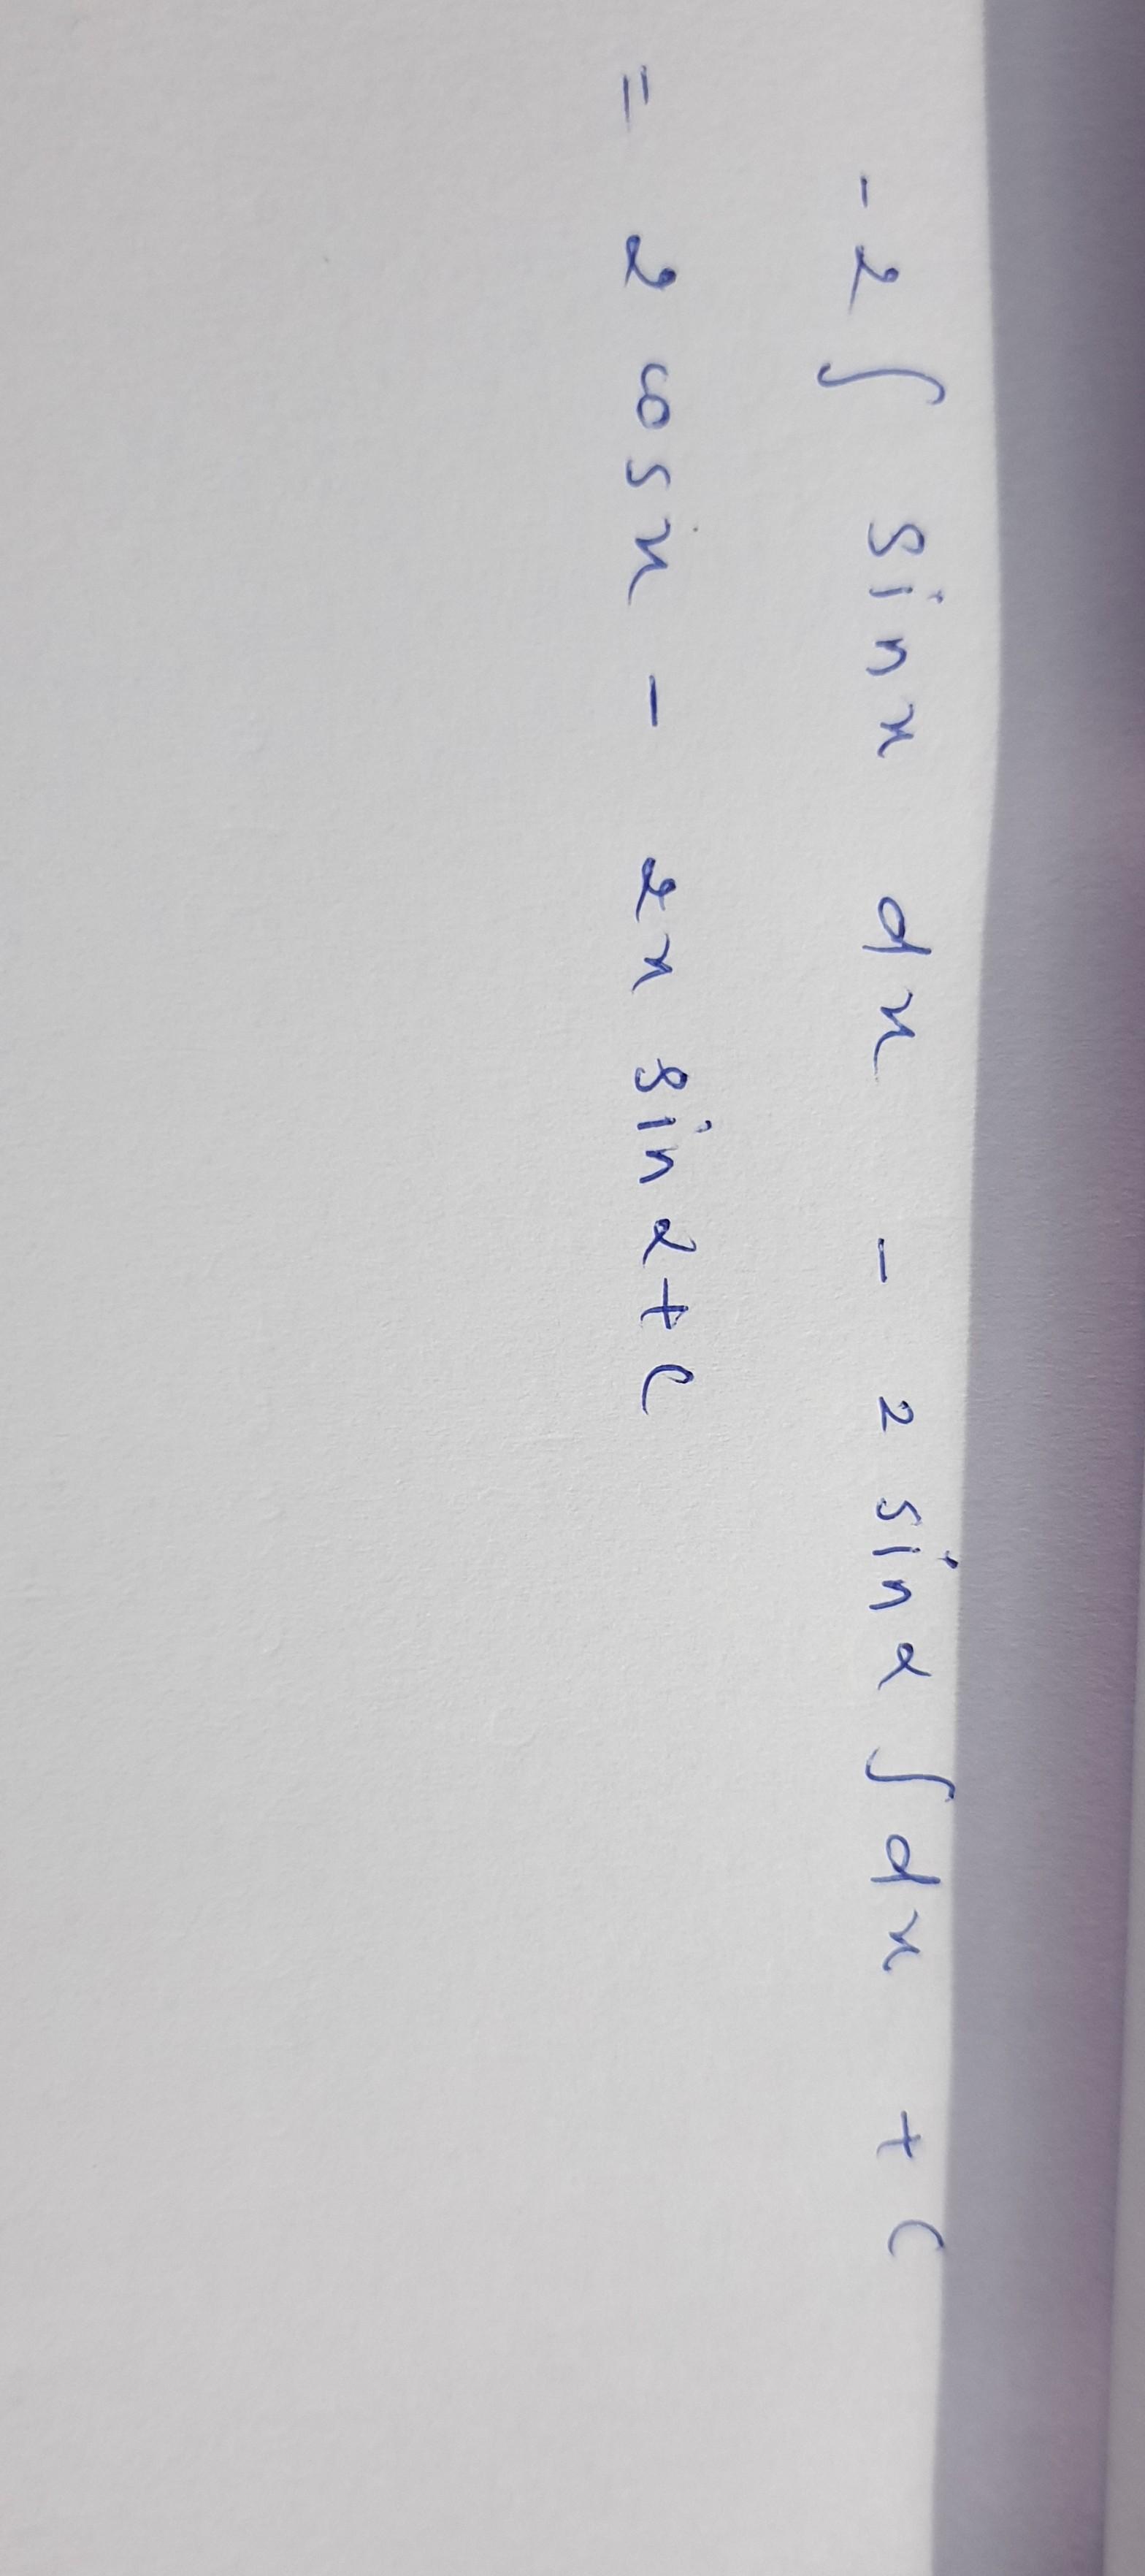 -2 ∫ sin x dx - 2 sin α ∫ dx + C
= 2 cos x - 2x sin α + C